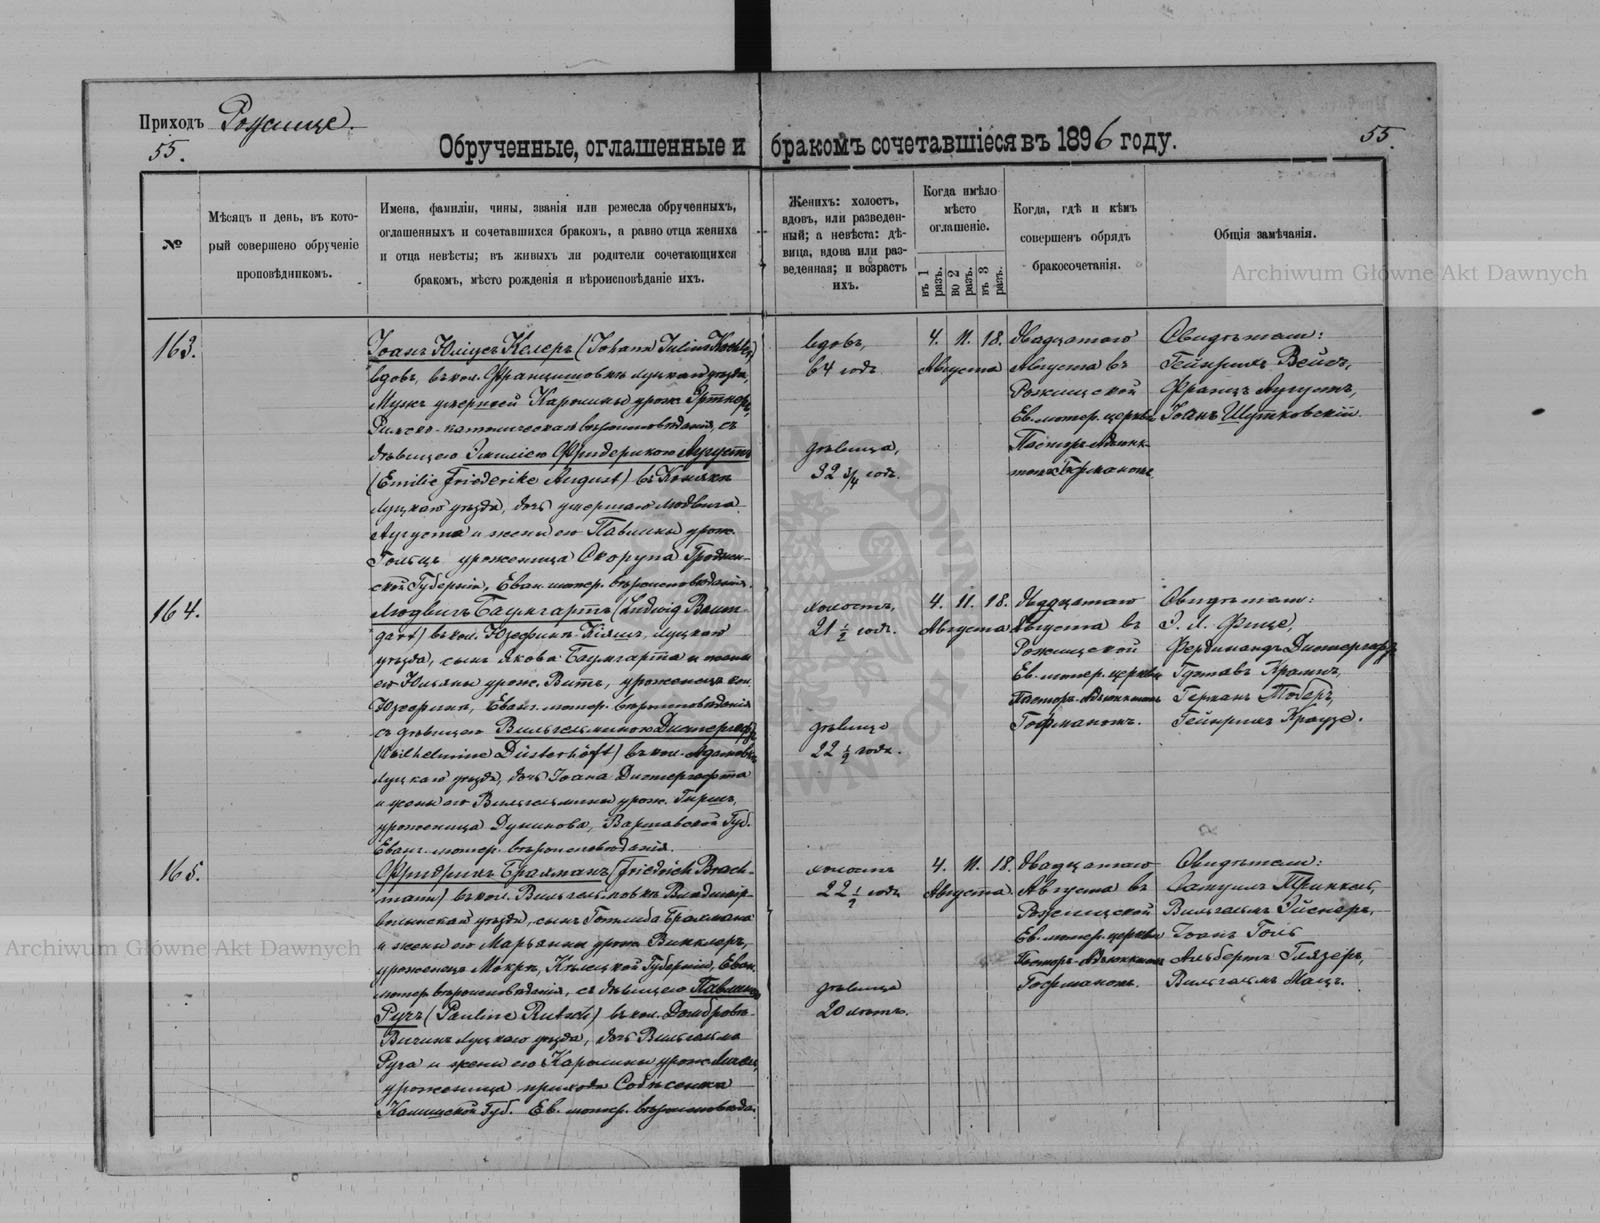 Приходъ Рожище.
55.
55.
Обрученные, оглашенные и бракомъ сочетавшіеся въ 1896 году.
№
Мѣсяцъ и день, въ кото-
рый совершено обрученіе
проповѣдникомъ.
Имена, фамиліи, чины, званія или ремесла обрученныхъ,
оглашенныхъ и сочетавшихся бракомъ, а равно отца жениха
и отца невѣсты; въ живыхъ ли родители сочетающихся
бракомъ, мѣсто рожденія и вѣроисповѣданіе ихъ.
Женихъ: холостъ,
вдовъ, или разведен-
ный; а невѣста: дѣ-
вица, вдова или раз-
веденная; и возрастъ
ихъ.
Когда имѣло
мѣсто
оглашеніе.
въ 1 разъ.
во 2 разъ.
въ 3 разъ.
Когда, гдѣ и кѣмъ
совершенъ обрядъ
бракосочетанія.
Общія замѣчанія.
Archiwum Główne Akt Dawnych
163.
Іоанъ Юліусъ Келеръ (Johann Julius Koehler)
вдовъ, въ кол. Францишовкѣ луцкаго уѣзда,
Мужъ умершей Каролины урож.
Римско-католическаго вѣроисповѣданія, съ
дѣвицею Эмиліею Фридерикою Августъ
(Emilie Friederike August) въ
Луцкаго уѣзда, дочь умершаго Людвига
Августа и жены его Павлины урож.
Гольцъ, уроженица Скорупа Гроднен-
ской Губерніи, Еван. лютер. вѣроисповѣданія.
вдовъ,
64 годъ
дѣвица,
32 3/4 годъ.
4. 11. 18.
Августа
Двадцатаго
Августа въ
Рожищской
Ев. лютер. церкви
Пасторъ-Адъюнк-
томъ Гофманомъ.
Свидѣтели:
Гейнрихъ Вейсъ,
Францъ Августъ,
Іоанъ Шутковскій.
164.
Людвигъ Баумгартъ (Ludwig Baum-
gart) въ кол. Юзефинъ- луцкаго
уѣзда, сынъ Якова Баумгарта и жены
его Юліаны урож. Витъ, уроженецъ кол.
Юзефинъ, Еванг. лютер. вѣроисповѣданія
съ дѣвицею Вильгельминою
(Wilhelmine Düsterhöft) въ кол.
Луцкаго уѣзда, дочь Іоана Дистергефта
и жены его Вильгельмины урож. Гиршъ,
уроженица Дуникова, Варшавской Губ.
Еванг. лютер. вѣроисповѣданія.
холостъ,
21 1/2 годъ.
дѣвица
22 1/2 года.
4. 11. 18.
Августа
Двадцатаго
Августа въ
Рожищской
Ев. лютер. церкви
Пасторъ-Адъюнктомъ
Гофманомъ.
Свидѣтели:
Э. Л. Фице,
Фердинандъ
Густавъ Крамъ,
Германъ Тоберъ,
Гейнрихъ Краузе.
165.
Фридрихъ Брахманъ (Friedrich Brach-
mann) въ кол. Вильгельмовкѣ Владимір-
волынскаго уѣзда, сынъ Готлиба Брахмана
и жены его Марьянны урож. Винклеръ,
уроженецъ Мокре, Кѣлецкой Губерніи, Еван.
лютер. вѣроисповѣданія, съ дѣвицею Павлиною
Ручъ (Pauline Rutsch) въ кол.
Луцкаго уѣзда, дочь Вильгельма
Руча и жены его Каролины урож.
уроженица прихода Собѣсенки
Калишской Губ. Ев. лютер. вѣроисповѣда.
холостъ
22 1/2 года
дѣвица
20 лѣтъ.
4. 11. 18.
Августа
Двадцатаго
Августа въ
Рожищской
Ев. лютер. церкви
Пасторъ-Адъюнктомъ
Гофманомъ.
Свидѣтели:
Самуилъ Принкель,
Вильгельмъ Эйснеръ,
Іоанъ Голь
Альбертъ Глязеръ,
Вильгельмъ Мацъ.
Archiwum Główne Akt Dawnych